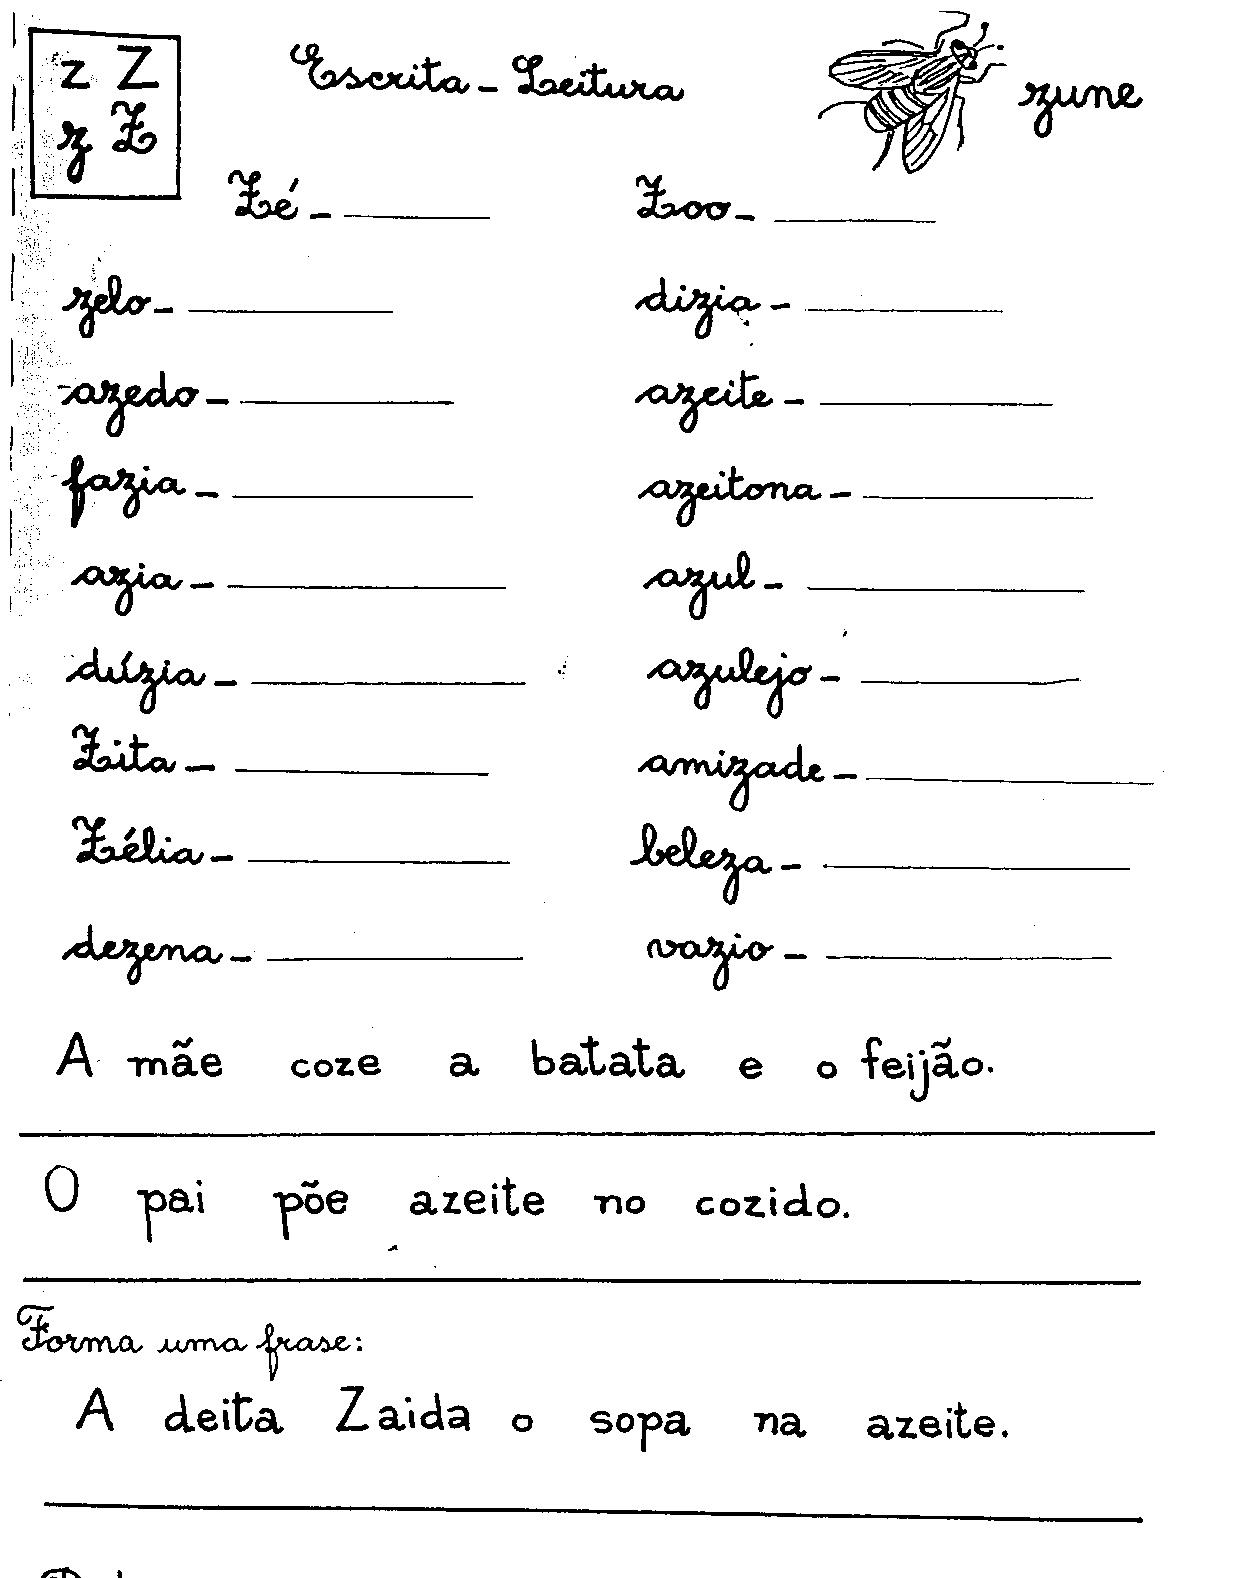 z Z Escrita - Leitura zune
z Z
Zé - Zoo -
zelo - dizia -
azedo - azeite -
fazia - azeitona -
azia - azul -
dúzia - azulejo -
Zita - amizade -
Zélia - beleza -
dezena - vazio -
A mãe coze a batata e o feijão.
O pai põe azeite no cozido.
Forma uma frase:
A deita Zaida o sopa na azeite.